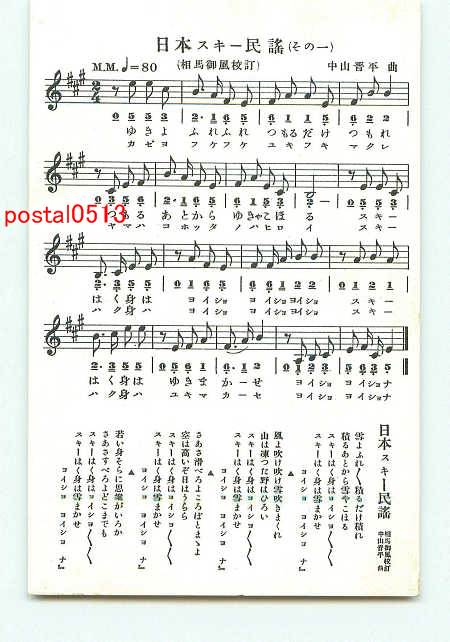 日本スキー民謠(その一)
M.M. ♩=80
(相馬御風校訂)
中山晋平 曲
2/4
0 5 5 5
ゆきよ ふれふれ つもるだけ つもれ
カゼヨ フケフケ ユキフキ マクレ
つもる あとから ゆきやこほる スキー
ヤマハ コホッタ ノハヒロイ スキー
postal0513
はく身は ヨイショ ヨイショヨイショ スキー
ハク身ハ ヨイショ ヨイショヨイショ スキー
はく身は ゆきま かーせ ヨイショ ヨイショナ
ハク身ハ ユキマ カーセ ヨイショ ヨイショナ
日本スキー民謠
相馬御風校訂
中山晋平 曲
雪よふれふれ積るだけ積れ
積るあとから雪やこほる
スキーはく身はヨイショ〱〱
スキーはく身は雪まかせ
ヨイシヨ ヨイシヨ ナ』
風よ吹け吹け雪吹きまくれ
山は凍つた野はひろい
スキーはく身はヨイショ〱〱
スキーはく身は雪まかせ
ヨイシヨ ヨイシヨ ナ』
さあさ滑べろよころばとまゝよ
空は高いぞ日はうらら
スキーはく身はヨイショ〱〱
スキーはく身は雪まかせ
ヨイシヨ ヨイシヨ ナ』
若い身そらに思案がいろか
さあさすべろよどこまでも
スキーはく身はヨイショ〱〱
スキーはく身は雪まかせ
ヨイシヨ ヨイシヨ ナ』